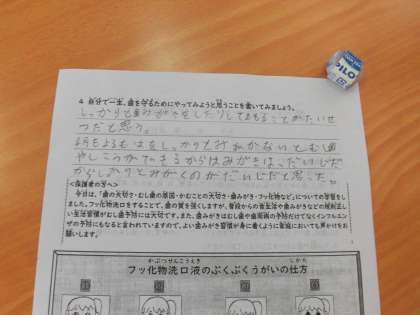 PILO
4 自分で一生、歯を守るためにやってみようと思うことを書いてみましょう。
しっかりと歯みがきをしたりしてまもることがたいせ
つだと思う。
はをしっかりとみがかないとむし歯
からしっかりとみがくのがだいじだと思った。
<保護者の方へ>
今日は、「歯の大切さ・むし歯の原因・かむことの大切さ・歯みがき・フッ化物など」についての学習をし
ました。フッ化物洗口をすることで、歯の質を強くしますが、普段からの食生活や歯みがきなどの規則正し
い生活習慣がむし歯予防には大切です。また、歯みがきはむし歯や歯周病の予防だけでなくインフルエン
ザの予防にもなると言われていますので、よい歯みがき習慣が身に着くように家庭においても声かけをお
願いします。
フッ化物洗口液のぶくぶくうがいの仕方
かぶつせんこうえき
しかた